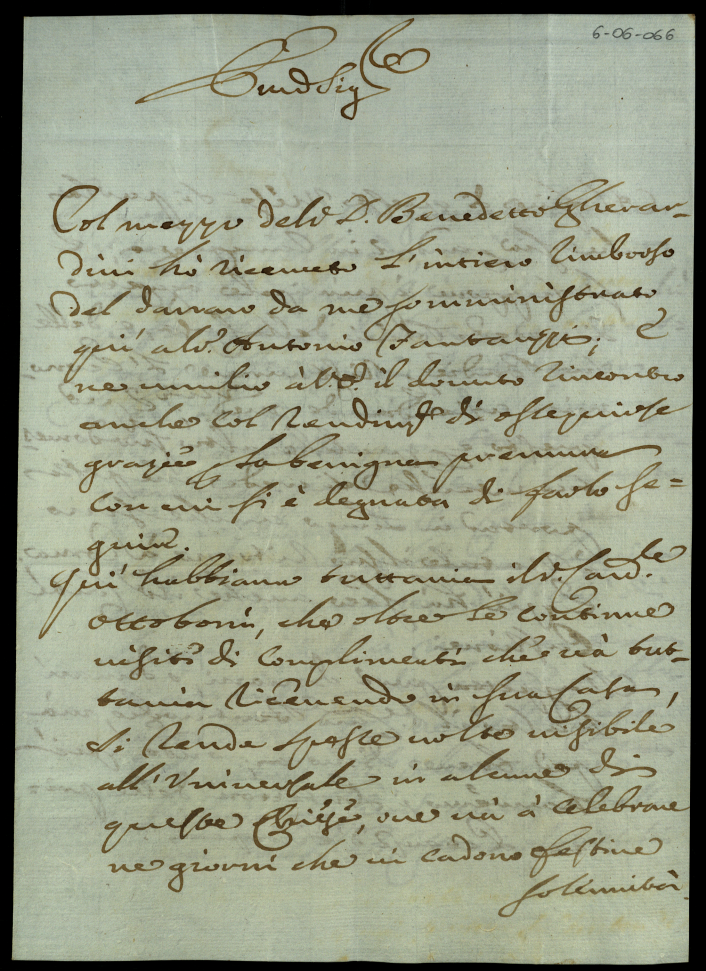 6-06-066
Col mezzo del Sr. D. Benedetto Gherar-
dini hò riceuuto l'intiero rimborso
del danaro da me somministrato
qui al Sr. Antonio Fantauzzi; e
ne umilio à V.S. il douuto riscontro
anche col rendim.to di ossequiose
grazie la benigna premura
con cui si è degnata di farlo se=
guire.
Qui habbiamo tuttauia il Sr. Card.le
Ottoboni, che oltre le continue
uisite di complimenti che uà tut=
tauia riceuendo in sua Casa,
si rende spesse uolte uisibile
all'Vniuersale in alcune di
queste Chiese, oue uà à celebrare
ne giorni che ui cadono festiue
solennità